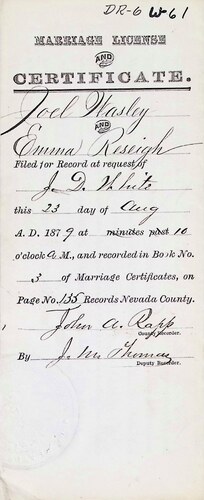 DR-6 W-61
MARRIAGE LICENSE
AND
CERTIFICATE.
Joel Wasley
AND
Emma Reseigh
Filed for Record at request of
J. D. White
this 23 day of Aug
A. D. 1879 at minutes past 10
o'clock A M., and recorded in Book No.
3 of Marriage Certificates, on
Page No. 155 Records Nevada County.
John A. Rapp
County Recorder.
By J. M. Thomas
Deputy Recorder.